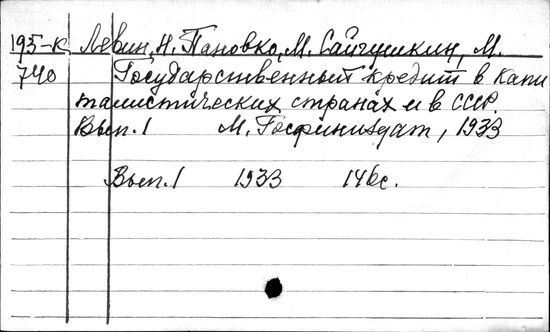 195-К Левин, Н. Пановко, М. Сайгушкин, М.
740 Государственный кредит в капи
талистических странах и в СССР.
Вып. 1 М. Госфиниздат, 1933
Вып. 1 1933 146с.